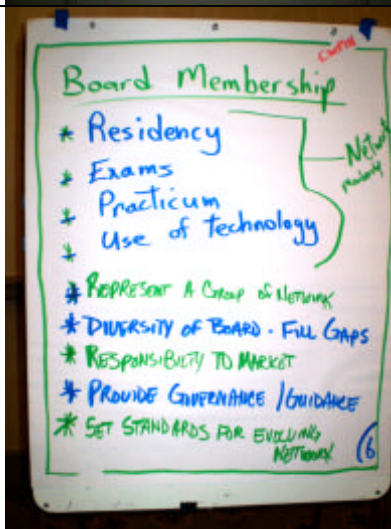 Board Membership
* Residency
* Exams
* Practicum
* Use of Technology
Network
* REPRESENT A GROUP OF NETWORK
* DIVERSITY OF BOARD - FILL GAPS
* RESPONSIBILTY TO MARKET
* PROVIDE GOVERNANCE / GUIDANCE
* SET STANDARDS FOR EVOLVING
NETWORK
6